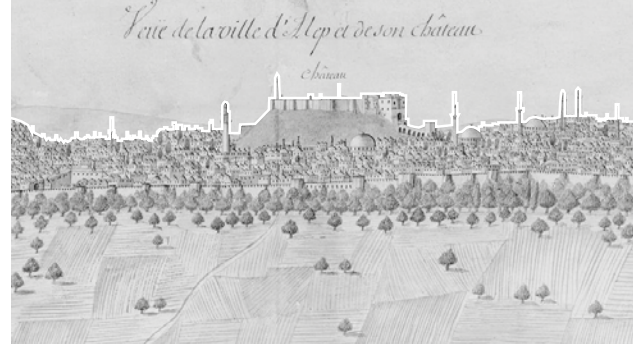 Veüe de la ville d'Alep et de son château
château